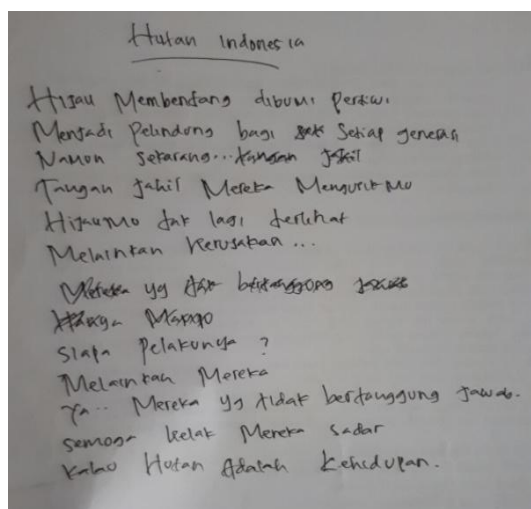 Hutan Indonesia
Hijau Membentang dibumi Pertiwi
Menjadi Pelindung bagi Setiap generasi
Namun Sekarang...
Tangan Jahil Mereka Mengusik Mu
HijauMu tak lagi terlihat
Melainkan Kerusakan...
Mereka yg tak bertanggung jawab
Siapa Pelakunya ?
Melainkan Mereka
Ya.. Mereka yg tidak bertanggung Jawab.
Semoga kelak Mereka Sadar
Kalau Hutan Adalah Kehidupan.